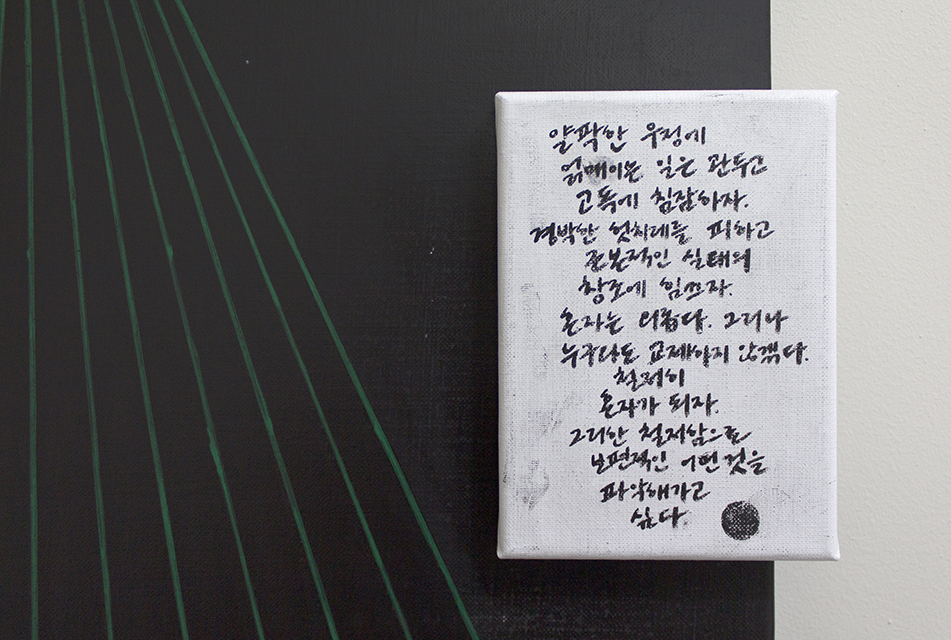 얄팍한 우정에
얽매이는 일은 관두고
고독에 침잠하자.
경박한 겉치레를 피하고
근본적인 실태의
창조에 힘쓰자.
혼자는 외롭다. 그러나
누구와도 교제하지 않겠다.
철저히
혼자가 되자.
그러한 철저함으로
보편적인 어떤 것을
파악해가고
싶다.